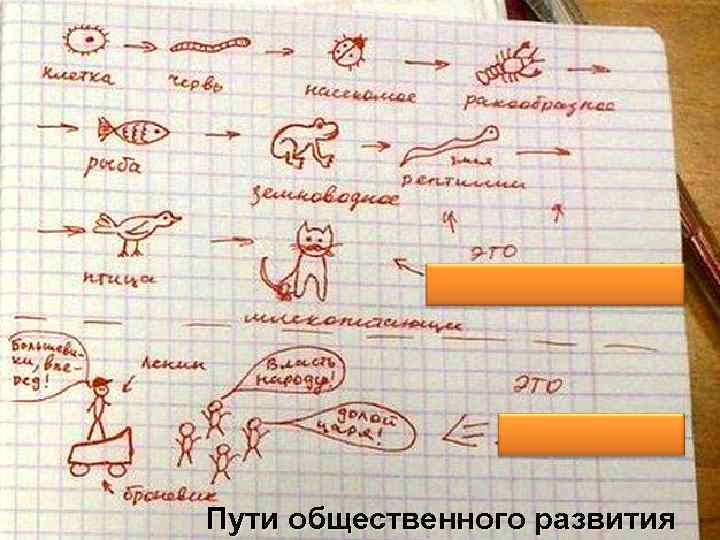 клетка червь насекомое ракообразное
рыба земноводное змея рептилии
птица млекопитающие ЭТО
Большеви-
ки, впе-
рёд!
Ленин
Власть
народу!
долой
царя!
ЭТО
броневик
Пути общественного развития